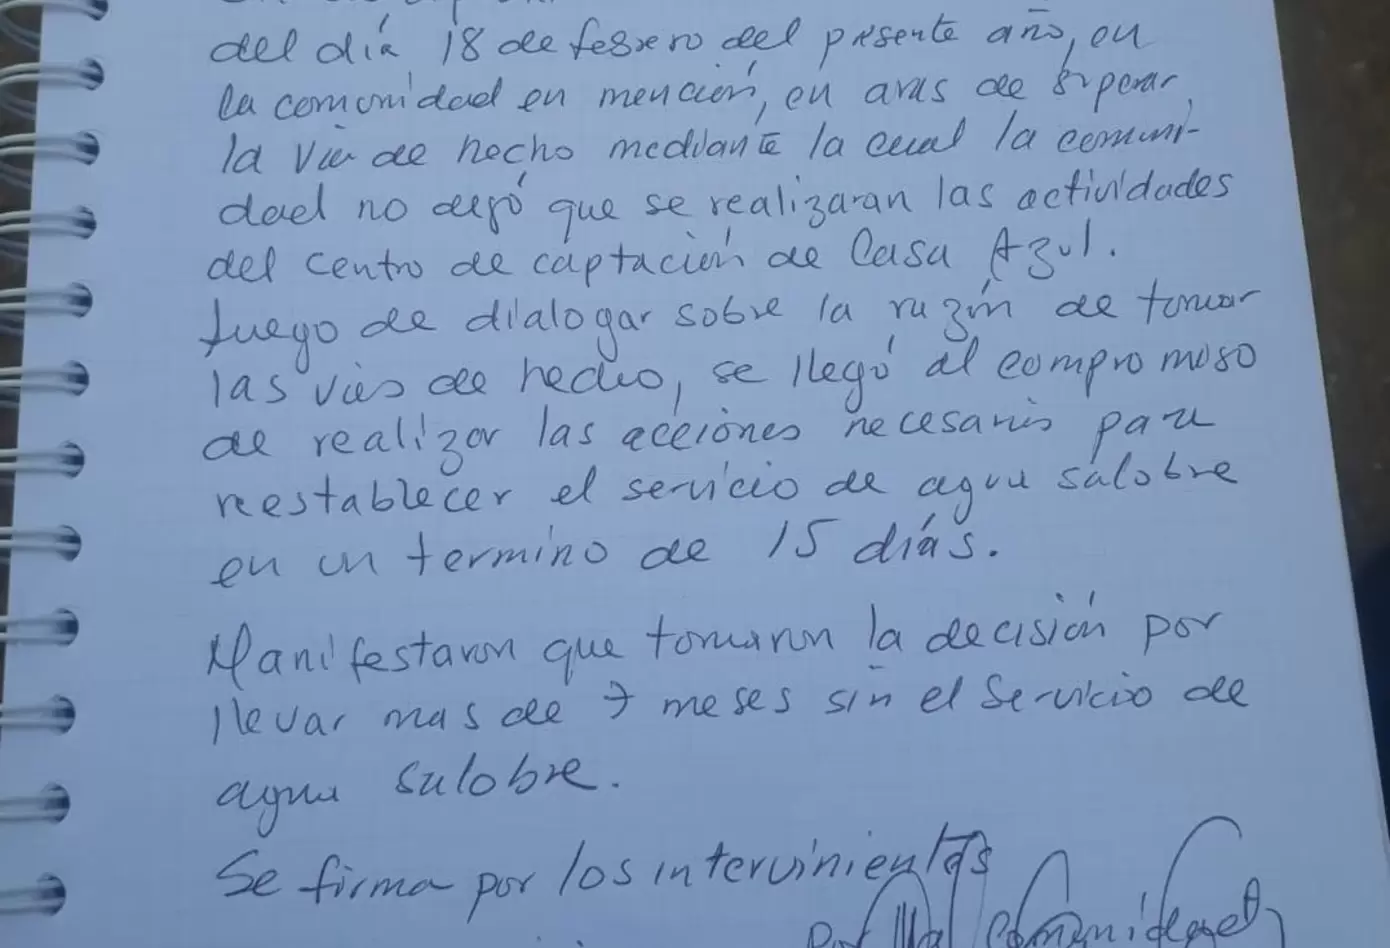 del día 18 de febrero del presente año, en
la comunidad en mención, en aras de superar
la vía de hecho mediante la cual la comuni-
dad no dejó que se realizaran las actividades
del centro de captación de Casa Azul.
Luego de dialogar sobre la razón de tomar
las vías de hecho, se llegó al compromiso
de realizar las acciones necesarias para
reestablecer el servicio de agua salobre
en un termino de 15 días.
Manifestaron que tomaron la decisión por
llevar mas de 7 meses sin el servicio de
agua salobre.
Se firma por los intervinientes
Comunidad